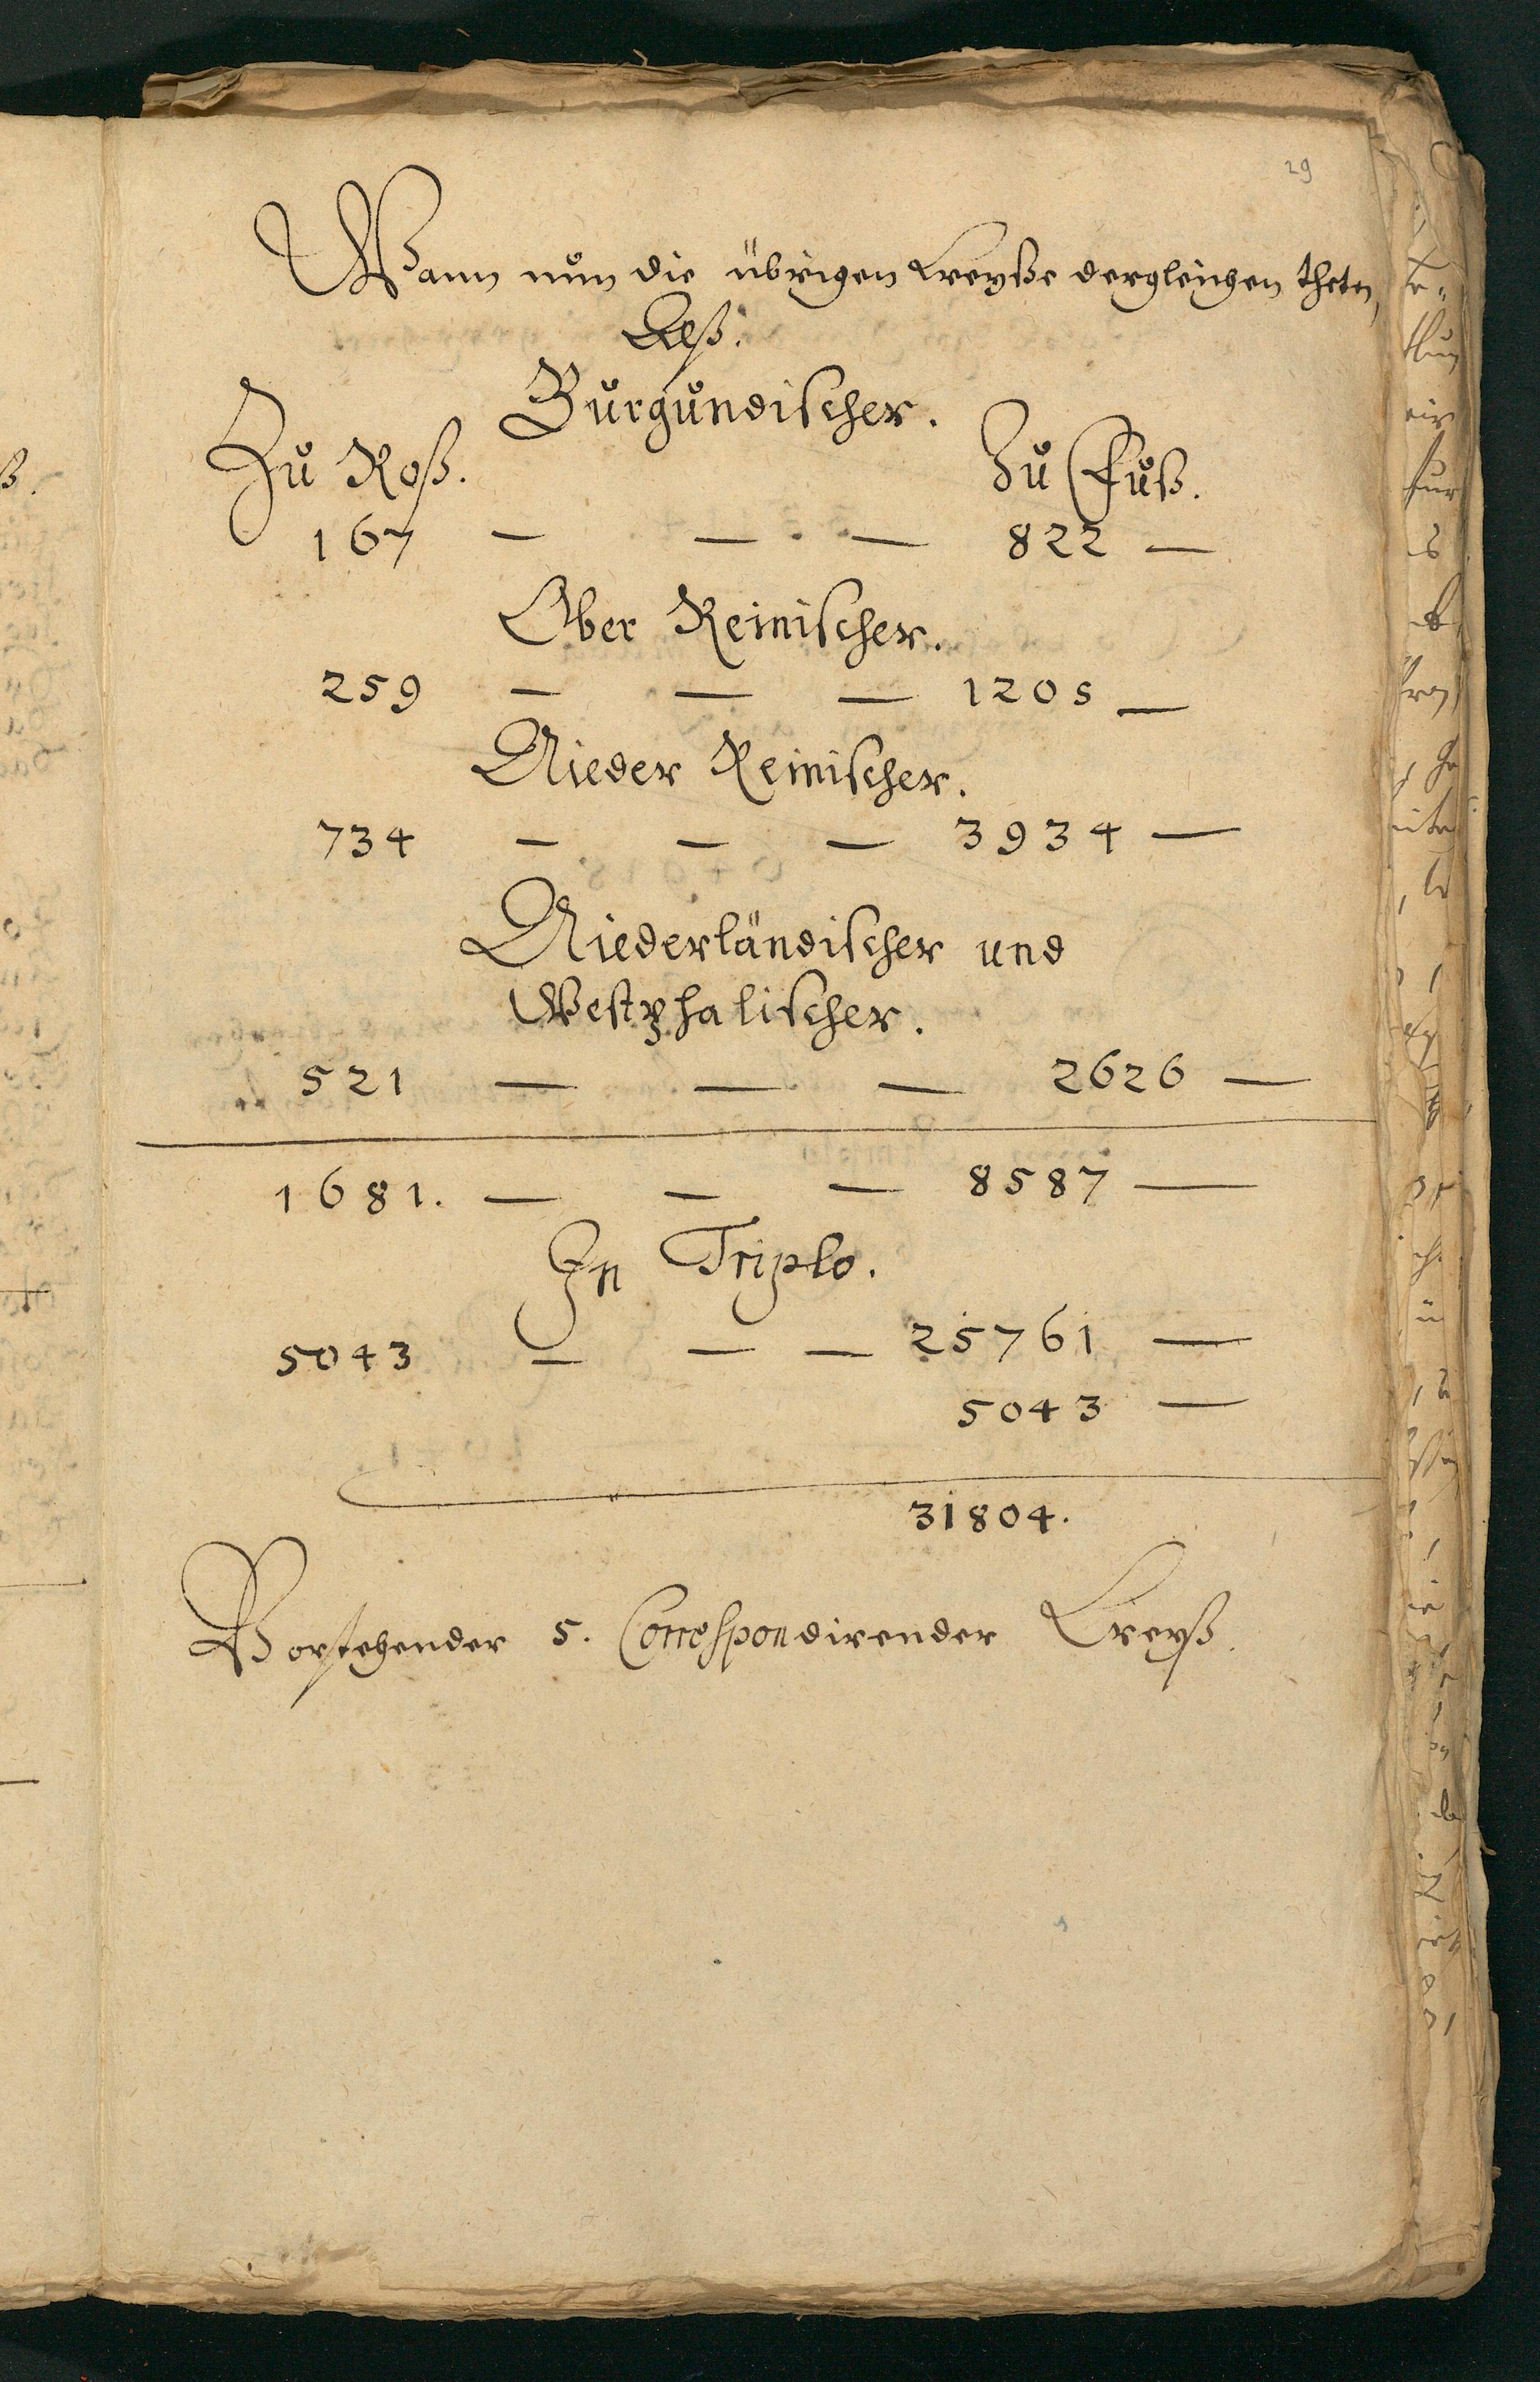 29
Wann nun die übrigen Kreyße dergleichen theten,
Alß.
Burgundischer.
Zu Roß. Zu Fuß.
167 — — — 822 —
Ober Reinischer.
259 — — — 1205 —
Nieder Reinischer.
734 — — — 3934 —
Niederländischer und
Westphalischer.
521 — — — 2626 —
1681. — — — 8587 —
In Triplo.
5043 — — — 25761 —
5043 —
31804.
Vorstehender 5. Correspondirender Kreyß.